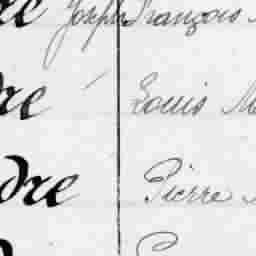 re Joseph François
dre Louis
dre Pierre